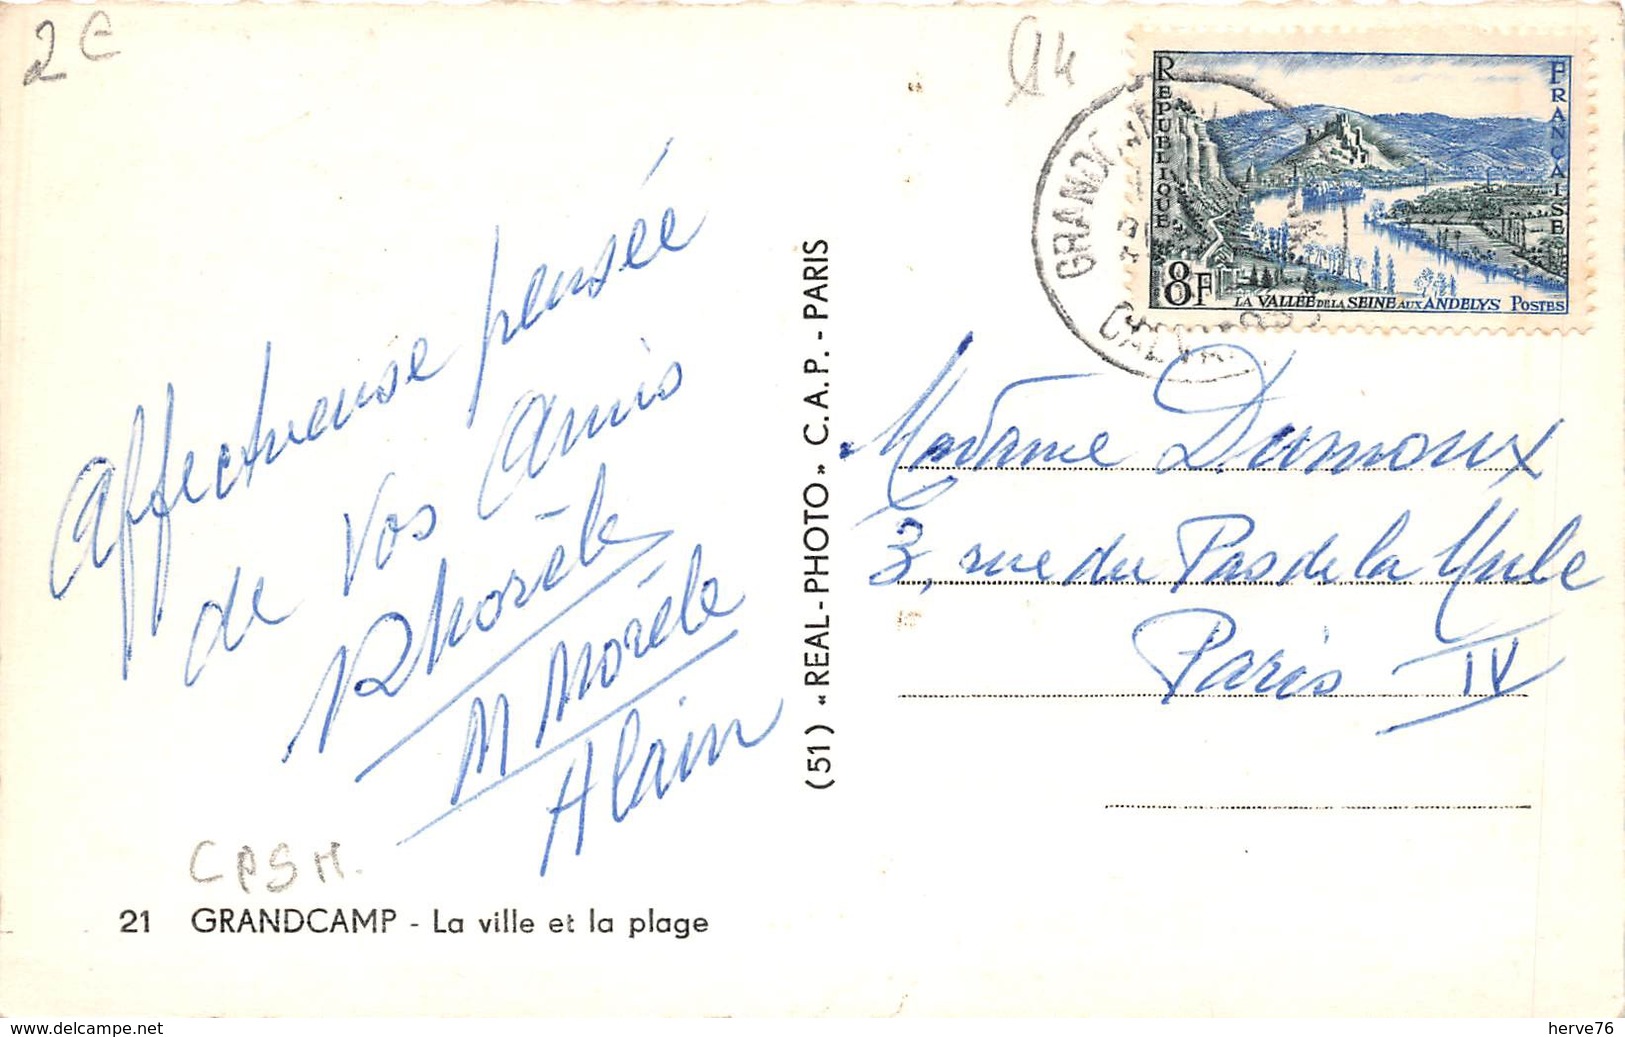 2 €
14
RÉPUBLIQUE FRANÇAISE
8F
LA VALLÉE DE LA SEINE AUX ANDELYS POSTES
GRANDCAMP
CALVADOS
Affectueuse pensée
de vos amis
Morèle
M Morèle
Alain
(51) « REAL-PHOTO » C.A.P. - PARIS
Madame Dumoux
3, rue du Pas de la Mule
Paris IV
CPSM.
21 GRANDCAMP - La ville et la plage
www.delcampe.net
herve76